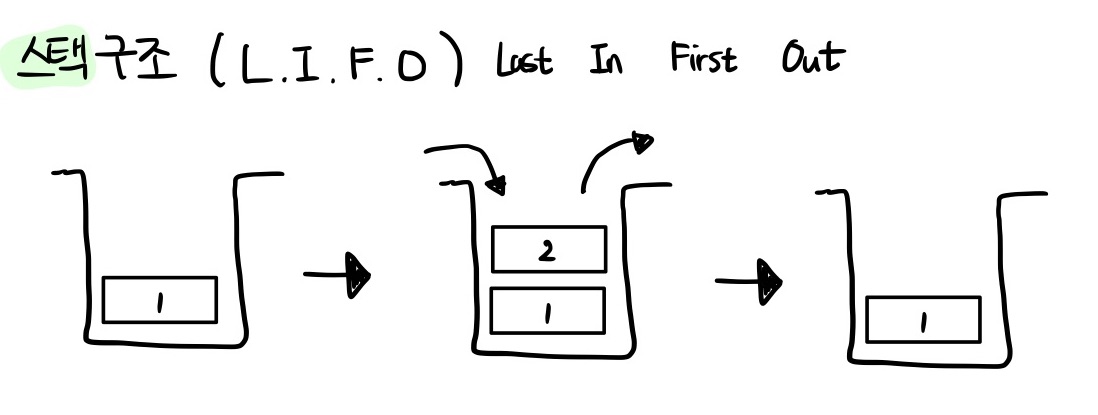 스택구조 (L.I.F.O) Last In First Out
1
2
1
1